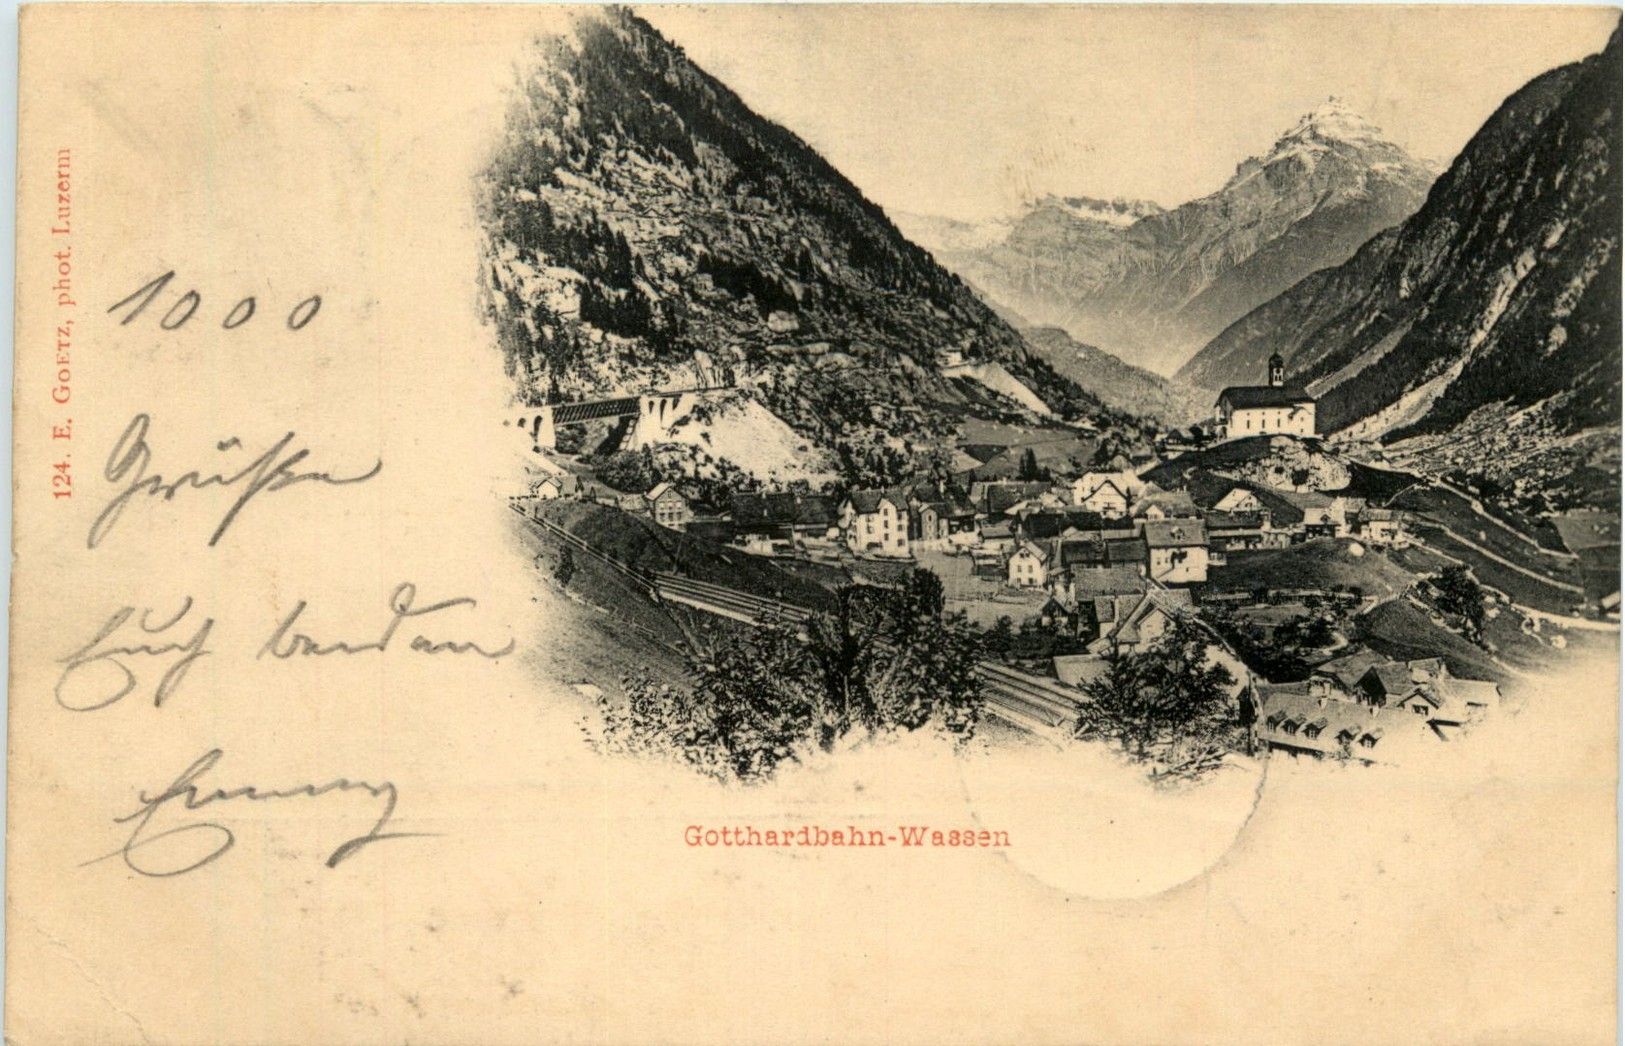 124. E. GOETZ, phot. Luzern
1000
Grüße
Euch beiden
Emmy
Gotthardbahn-Wassen